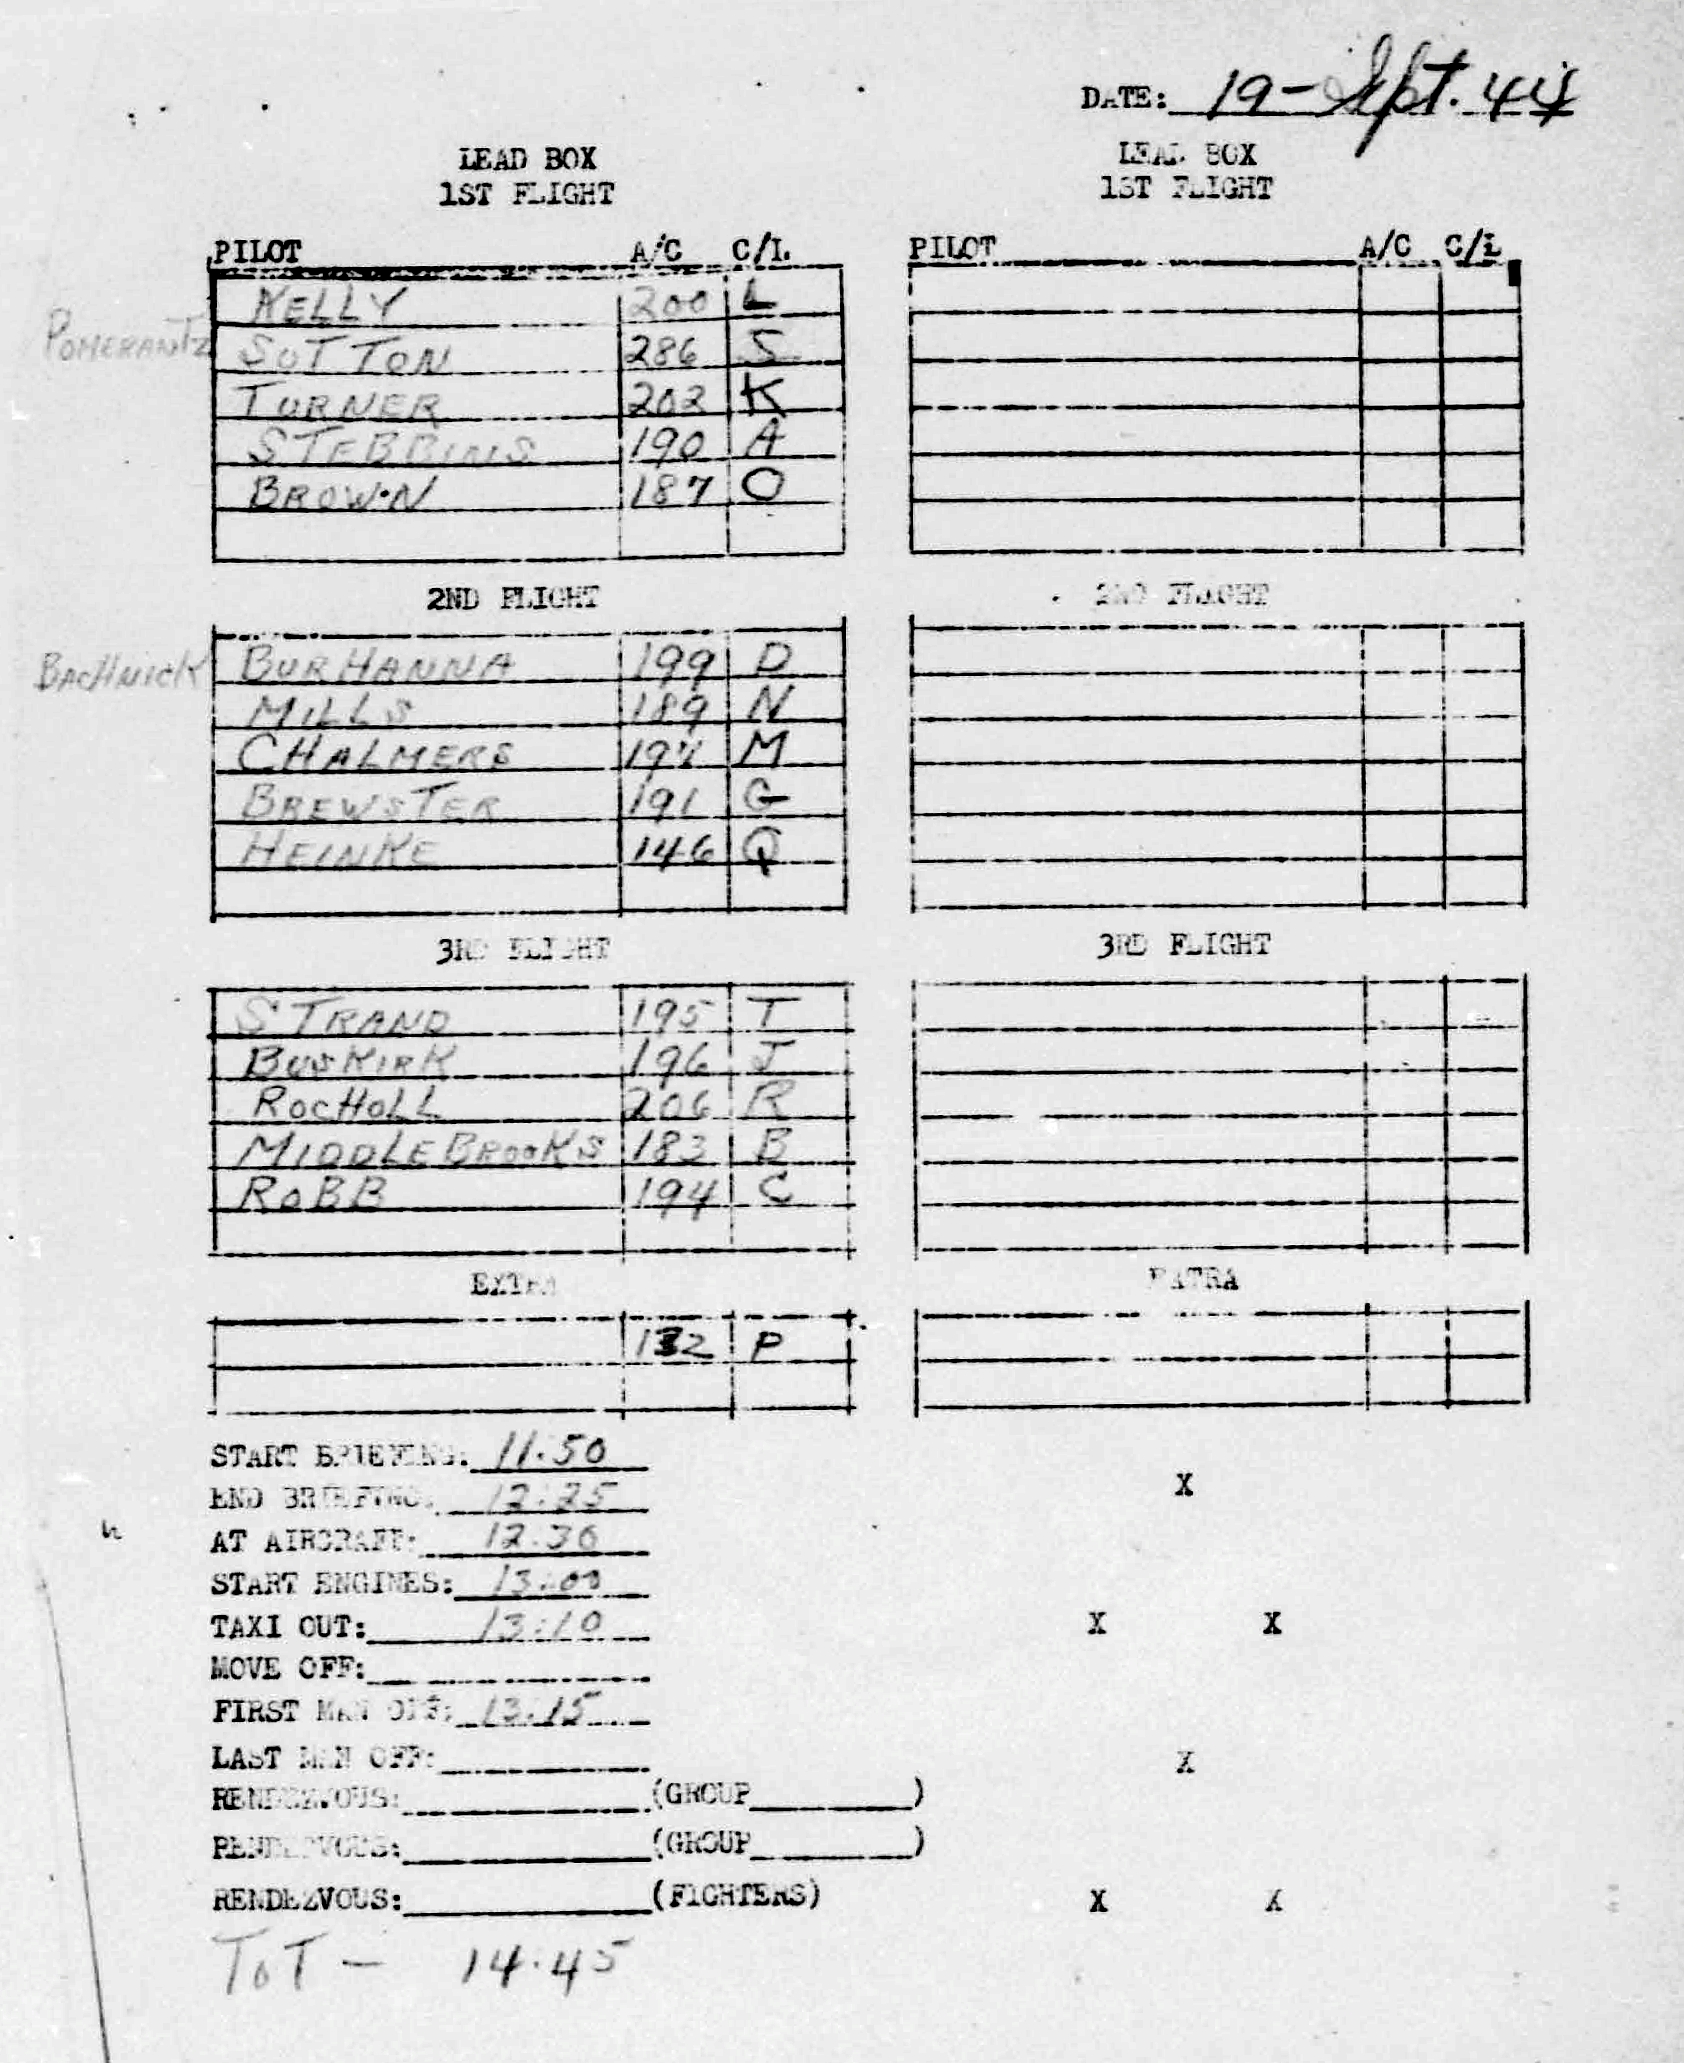 DATE: 19-Sept. 44
LEAD BOX
1ST FLIGHT
PILOT A/C C/L
KELLY 200 L
POMERANTZ
SUTTON 286 S
TURNER 202 K
STEBBINS 190 A
BROWN 187 O
2ND FLIGHT
BACHNICK
BURHANNA 199 D
MILLS 189 N
CHALMERS M
BREWSTER 191 G
HEINKE 146 Q
3RD FLIGHT
STRAND 195 T
BUSKIRK 196 J
ROCHOLL 206 R
MIDDLEBROOKS 183 B
ROBB 194 C
EXTRA
132 P
LEAD BOX
1ST FLIGHT
PILOT A/C C/L
2ND FLIGHT
3RD FLIGHT
EXTRA
START BRIEFING: 11.50
END BRIEFING: 12:25
AT AIRCRAFT: 12.30
START ENGINES: 13:00
TAXI OUT: 13:10
MOVE OFF:
FIRST MAN OFF: 13:15
LAST MAN OFF:
RENDEZVOUS: (GROUP )
RENDEZVOUS: (GROUP )
RENDEZVOUS: (FIGHTERS)
TOT - 14.45
X
X X
X
X X